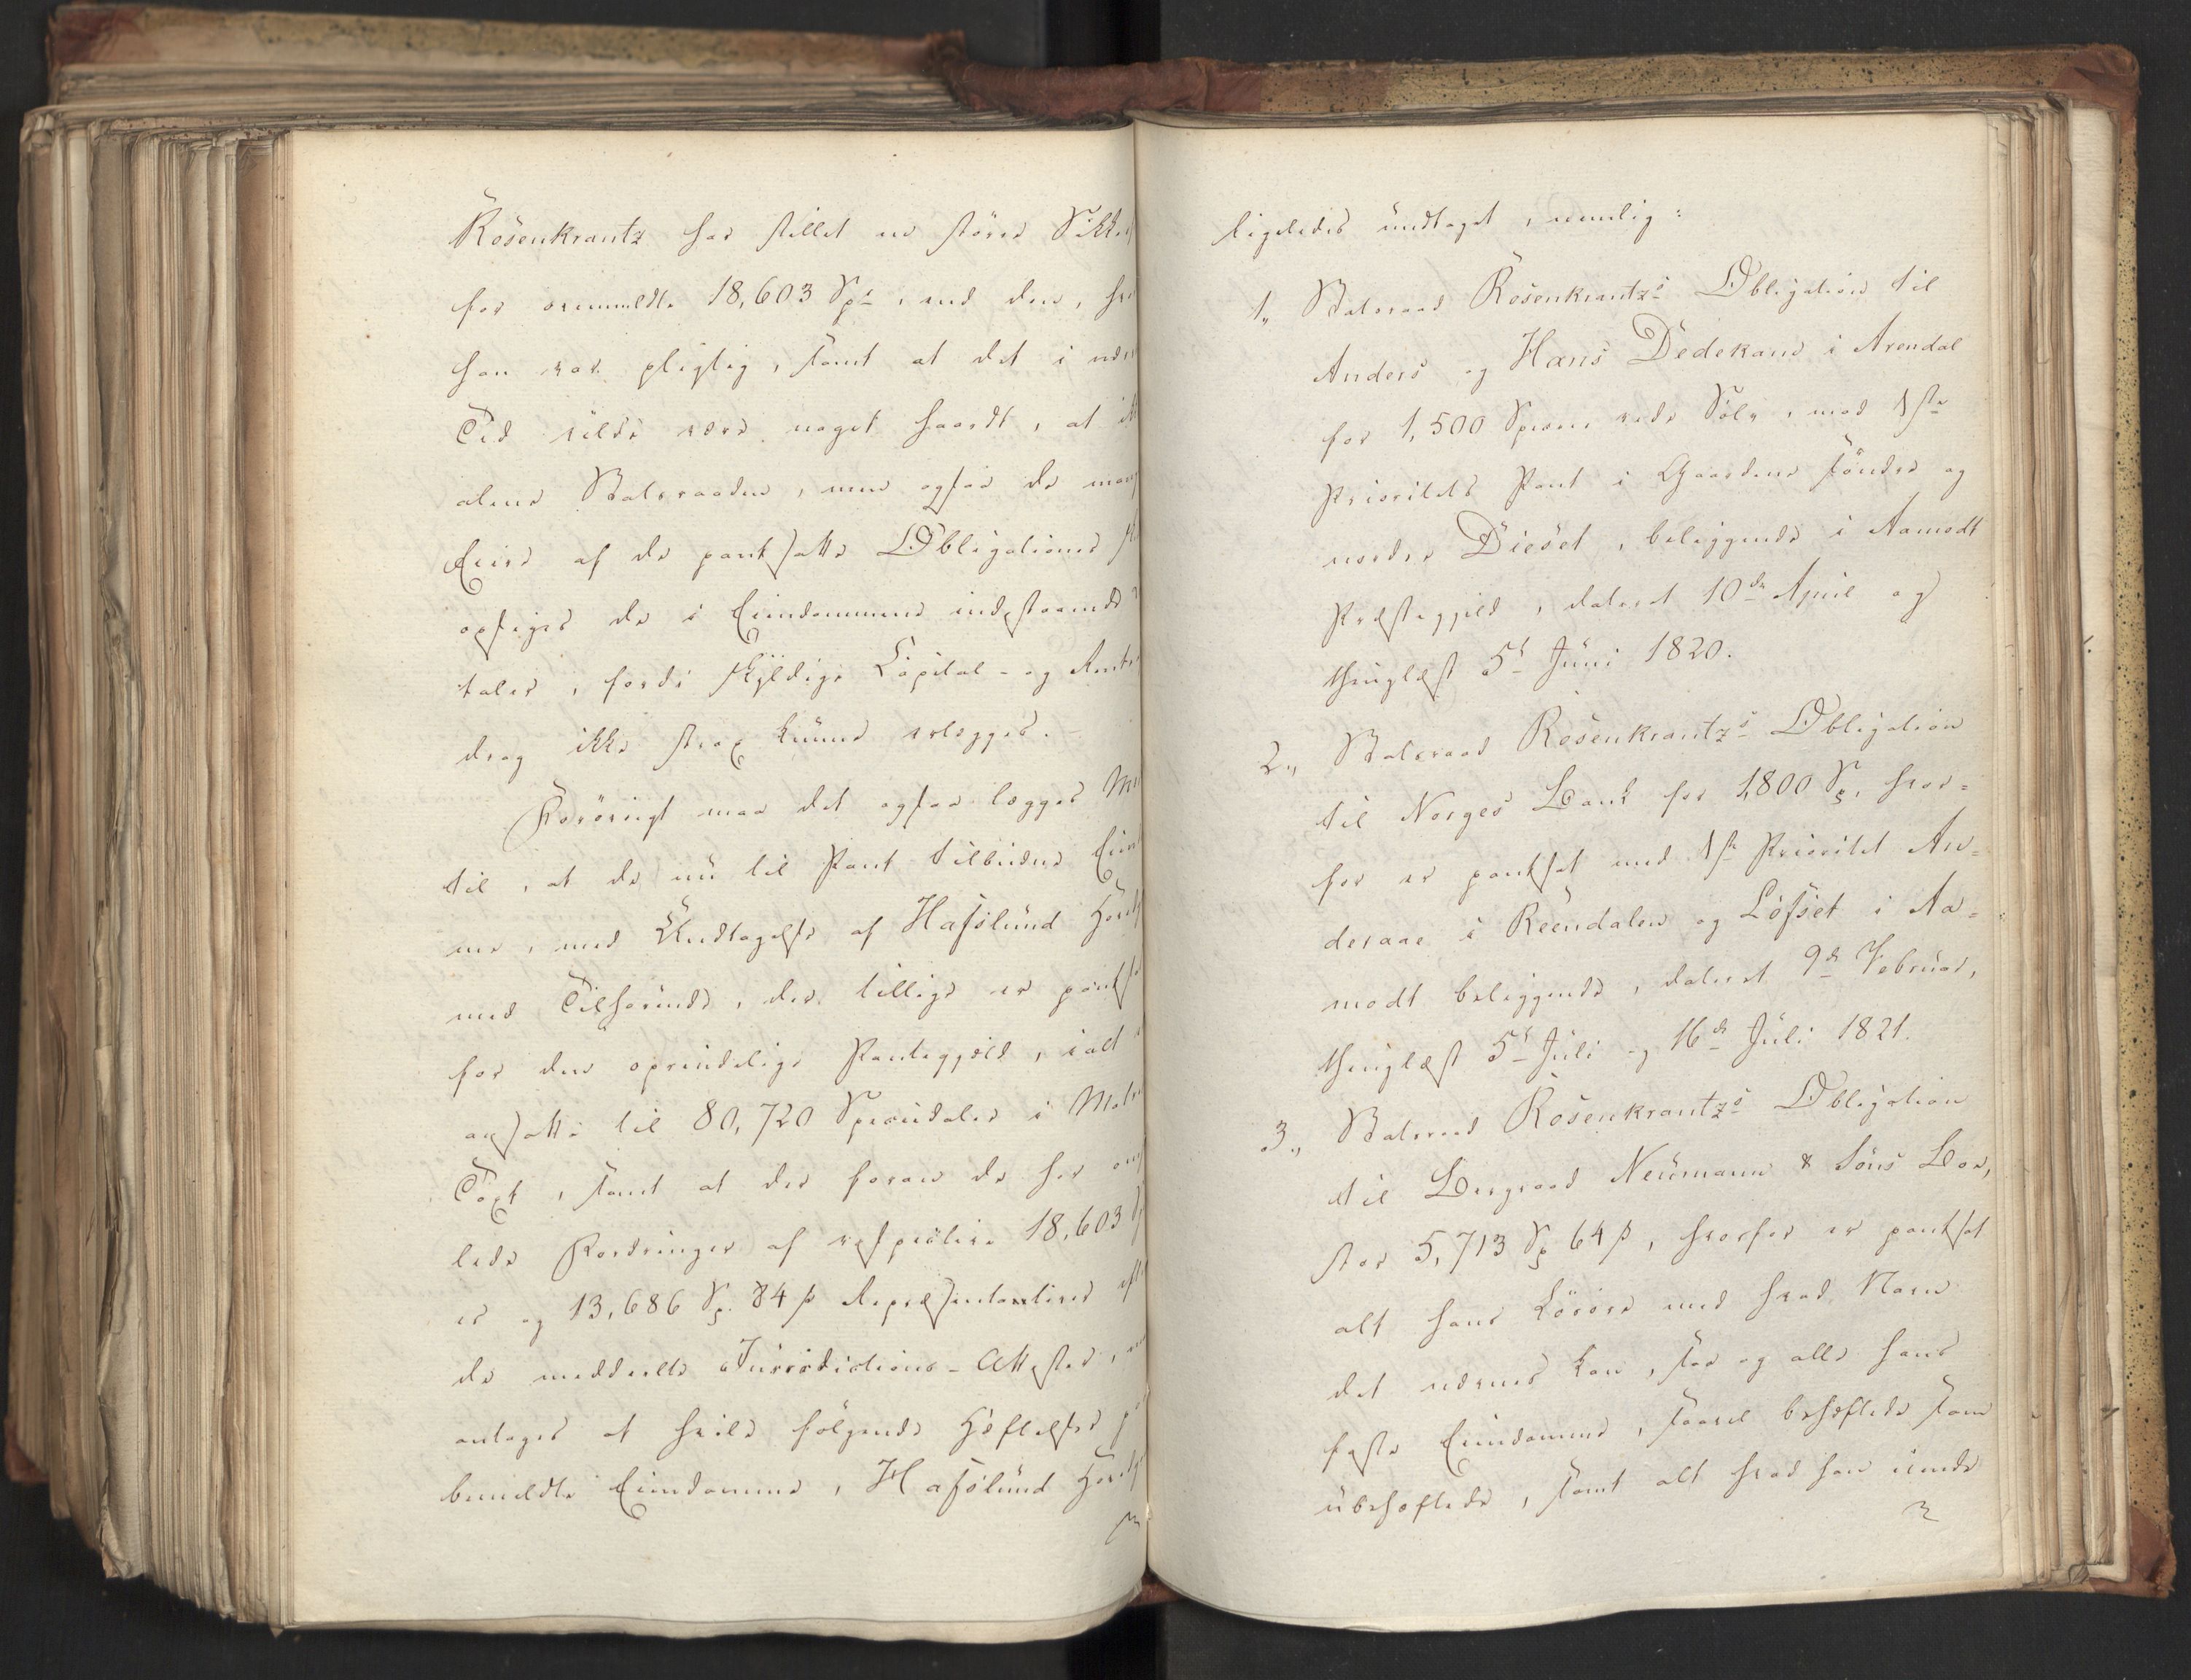 Rosenkrantz har stillet en større Sikker
for ovenmeldte 18,603 Spr, end den, hvo
han var pligtig, samt at det i nær
Tid vilde være noget haardt, at ik
alene Statsraaden, men ogsaa de mang
Eiere af de pantsatte Obligationer
opsiges de i Eiendommene indestaaende
taler, fordi skyldige Capital- og Rente
drag ikke strax kunne erlægges.
Forøvrigt maa det ogsaa lægges Mæ
til, at de nu til Pant tilbudne Eien
me, med Undtagelse af Hafslund Hoved
med Tilhørende, der tillige er pantsa
for den oprindelige Pantegjeld, ialt
ansatte til 80,720 Speciedaler i Matr
Taxt, samt at der foran de her om
lede Fordringer af respective 18,603
er og 13,686 Sp. 84 ß Repræsentantives eft
de meddeelte Jurisdictions-Attester,
antages at hvile følgende Hæftelser p
bemeldte Eiendomme, Hafslund Hoved
ligeledes undtaget, nemlig:
1, Statsraad Rosenkrantzs Obligation til
Anders og Hans Dedekam i Arendal
for 1,500 Species rede Sølv, mod 1ste
Prioritets Pant i Gaardene søndre og
nordre Dieset, beliggende i Aamodt
Præstegjeld, dateret 10de April og
thinglæst 5t Juni 1820.
2, Statsraad Rosenkrantzs Obligation
til Norges Bank for 1,800 Sp, hvor=
for er pantsat med 1ste Prioritet An=
deraae i Reendalen og Løfset i Aa=
modt beliggende, dateret 9de Februar,
thinglæst 5t Juli og 16de Juli 1821.
3, Statsraad Rosenkrantzs Obligation
til Bergraad Neumann & Søns Boe,
stor 5,713 Sp 64 ß, hvorfor er pantsat
alt hans Løsøre med hvad Navn
det nævnes kan, saa og alle hans
faste Eiendomme, saavel behæftede som
ubehæftede, samt alt hvad han eiende